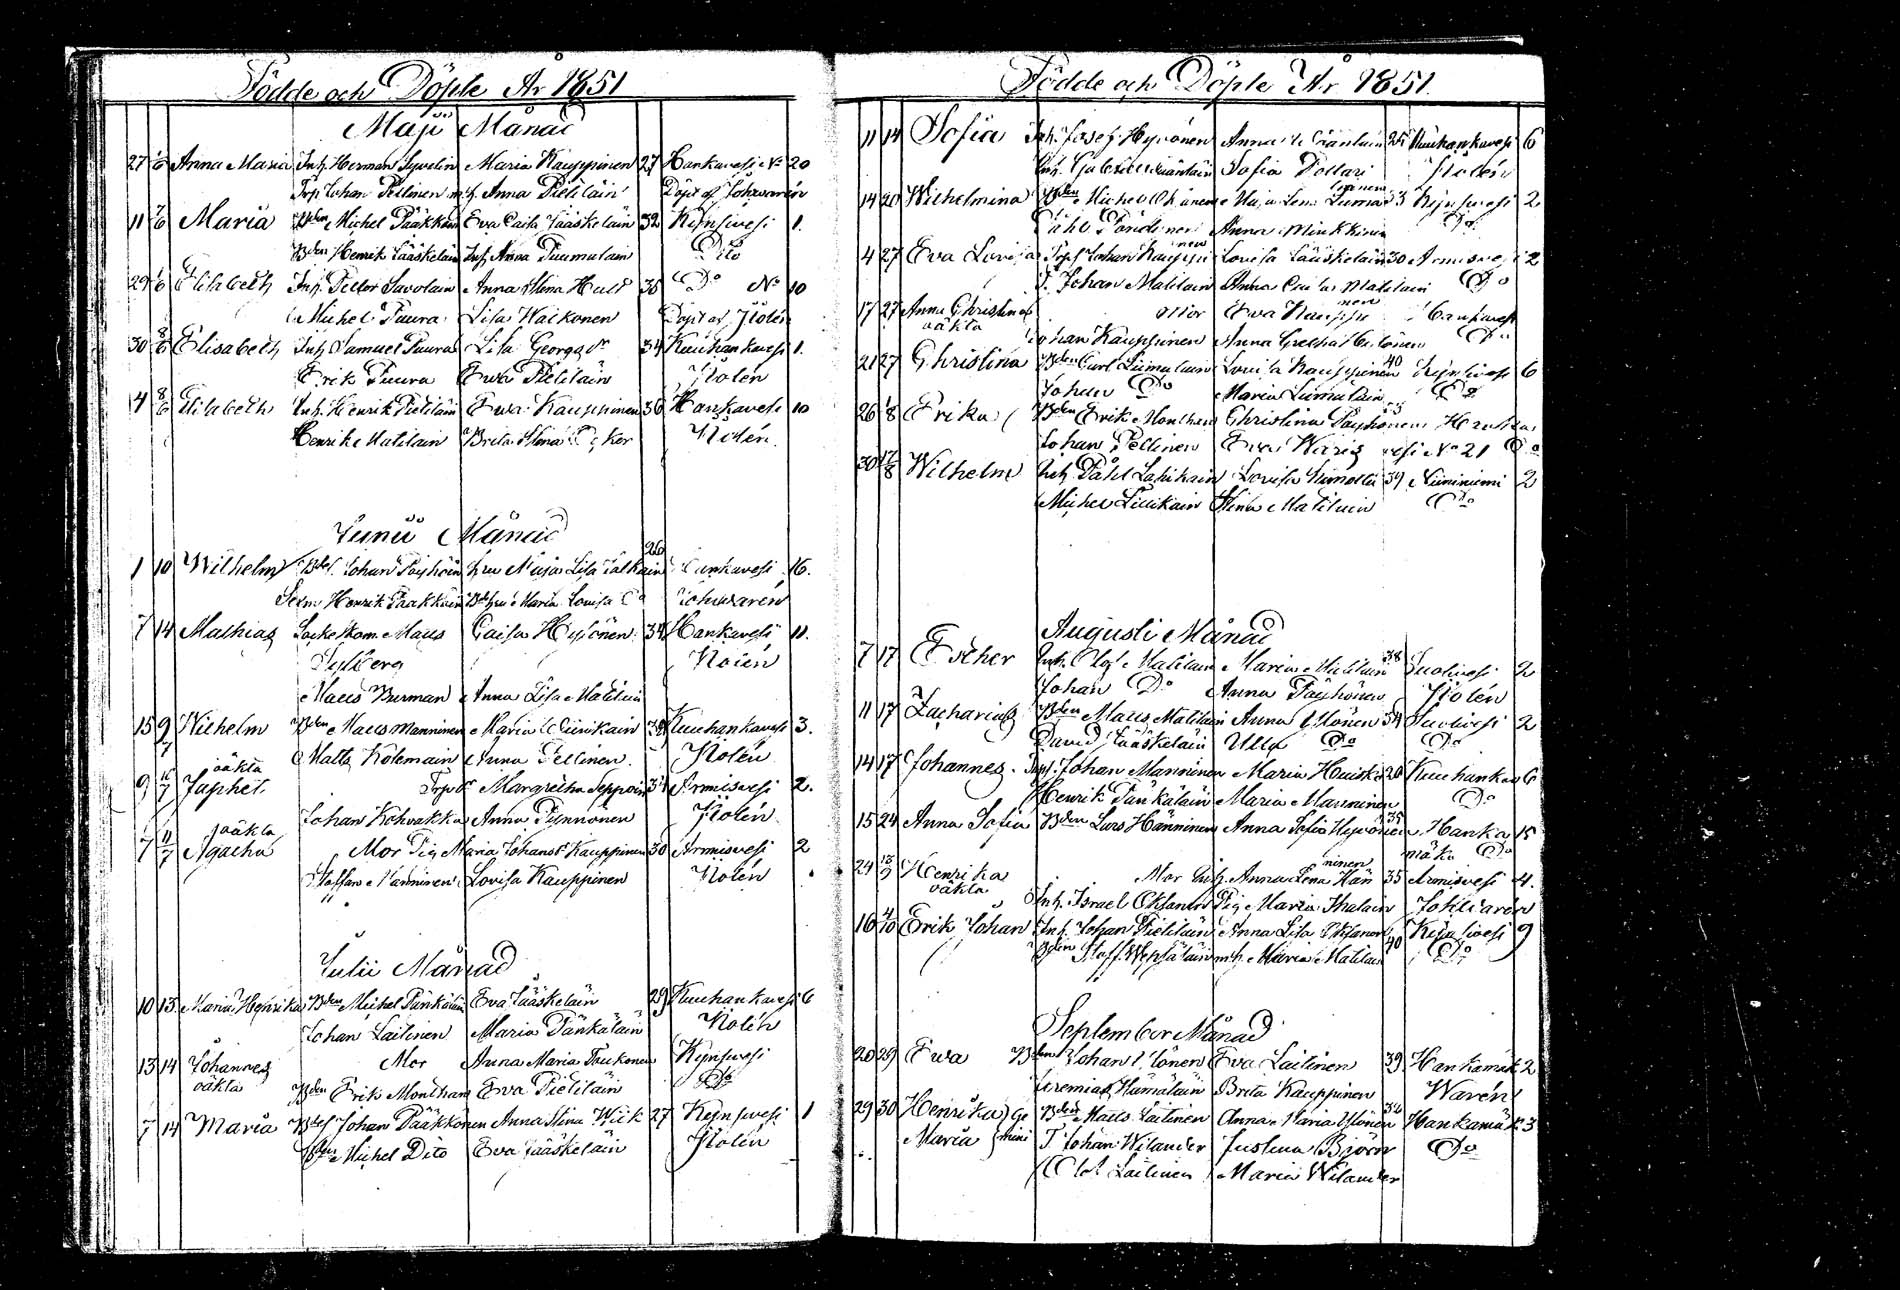 Födde och Döpte År 1851
Maji Månad
27 1/6 Anna Maria Inh. Herman Sywelin Maria Kauppinen 27 Hankavesi No 20
Torp Johan Pellinen m.h. Anna Pietiläin Döpt af Johwarén
11 7/6 Maria Bden Michel Pääkkön Eva Caisa Jääskeläin 32 Kynsivesi 1.
Bden Henrik Jääskeläin Inh. Anna Tuumalain Dito
29 1/6 Elisabeth Inh. Petter Savolain Anna Stina Hult 35 Do No 10
Michel Puura Lisa Halkonen Döpt af Nolén
30 8/6 Elisabeth Inh. Samuel Puura Lisa Georgsdr 34 Kuuhankavesi 1.
Erik Puura Ewa Pietiläin Nolén
4 8/6 Elisabeth Inh. Henrik Pietiläin Ewa Kauppinen 36 Hankavesi 10
Henrik Matilain Brita Stina Nolén
Junii Månad
1 10 Wilhelm Bdes. Johan Päyhöin hru Maja Lisa 26 Hankavesi 16.
Henrik Pääkköin hru Maria Lovisa Do Johwarén
7 14 Mathias Sockskom. Matts Caisa Hytönen 34 Hankavesi 11.
Sylberg Nolén
Matts Burman Anna Lisa Matilain
15 9/7 Wilhelm Bden Matts Manninen Maria Kuuhankavesi 3.
Matts Kolemain Anna Pellinen. Nolén
oäkta
9 Japhet. Torp dr Margretha Seppoin 31 Armisvesi 2.
Johan Kohvakka Anna Pynnönen Nolén
oäkta
7 11/7 Agatha Mor Pig Maria Johansdr Kauppinen 30 Armisvesi 2
Staffan Manninen Lovisa Kauppinen Nolén
Julii Månad
10 13 Maria Henrika Bden Michel Pänkäläin Eva Jääskeläin 29 Kuuhankavesi 6
Johan Laitinen Maria Pänkäläin Nolén
13 14 Johannes Mor Anna Maria Kynsivesi
oäkta Bden Erik Monthan Eva Pietiläin Do
7 14 Maria Bdes Johan Pääkkönen Anna Stina Wiik 27 Kynsivesi 1
Bden Michel Dito Eva Jääskeläin Nolén
Födde och Döpte År 1851.
11 14 Sofia Inh. Josef Hyvönen Anna 25 Kuuhankavesi 6
Inh. Sofia Pollari Nolén
14 20 Wilhelmina Bden Michel Maja Lena Kynsivesi 2
Påhl Anna Minkkinen Do
4 27 Eva Lovisa Torp Johan Kauppinen Lovisa Jääskeläin 30 Armisvesi 2
T. Johan Matilain Anna Caisa Matilain Do
17 27 Anna Christina Mor Ewa Kauppinen Hankavesi
oäkta Johan Kauppinen Anna Gretha Do
21 27 Christina Bden Carl Liimatain Lovisa Kauppinen 40 Kynsivesi 6
Johan Do Maria Liimatain Do
26 1/8 Erika Bden Erik Monthan Christina Päyhönen Hanka
Johan Pellinen Eva vesi No 21 Do
30 17/8 Wilhelm Inh. Påhl Lasikain Lovisa 39 Niininiemi 2
Michel Lillikain Stina Matilain Do
Augusti Månad
7 17 Esther Inh. Olof Matilain Maria Matilain 38 Suolivesi 2
Johan Do Anna Päyhönen Nolén
11 17 Zacharias Bden Matts Matilain Anna Ylönen 34 Suolivesi 2
David Jääskeläin Ulla Do Do
14 17 Johannes. Torp. Johan Manninen Maria 26 Kuuhanka 6
Henrik Pänkäläin Maria Manninen Do
15 24 Anna Sofia Bden Lars Hänninen Anna Sofia Hyvönen 35 Hanka 15
mäki Do
24 Henrika Mor Inh. Anna Lena Hänninen 35 Armisvesi 4.
oäkta Inh. Israel Oksanen Pig Maria Ihalain Johwarén
16 4/10 Erik Johan Inh. Johan Pietiläin Anna Lisa Oksanen 40 Kynsivesi 9
Bden Staff. Wepsäläin m.h. Maria Matilain Do
September Månad
20 29 Ewa Bden Johan Ylönen Eva Laitinen 39. Hankamäk 2
Jeremias Hämäläin Brita Kauppinen Warén
29 30 Henrika Ge Bden Matts Laitinen Anna Maria Ylönen 36 Hankamäk 3
Maria mini T Johan Wilander Justina Björn Do
Olof Laitinen Maria Wilander